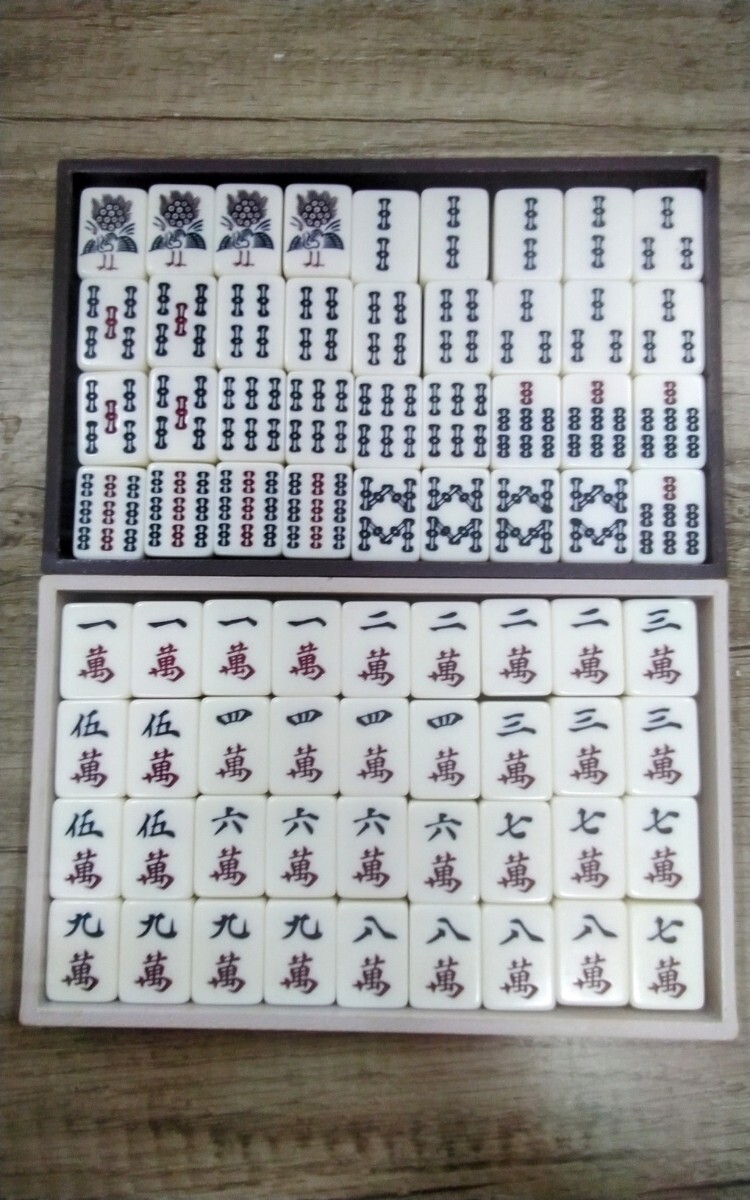 一 一 一 一 二 二 二 二 三
萬 萬 萬 萬 萬 萬 萬 萬 萬
伍 伍 四 四 四 四 三 三 三
萬 萬 萬 萬 萬 萬 萬 萬 萬
伍 伍 六 六 六 六 七 七 七
萬 萬 萬 萬 萬 萬 萬 萬 萬
九 九 九 九 八 八 八 八 七
萬 萬 萬 萬 萬 萬 萬 萬 萬